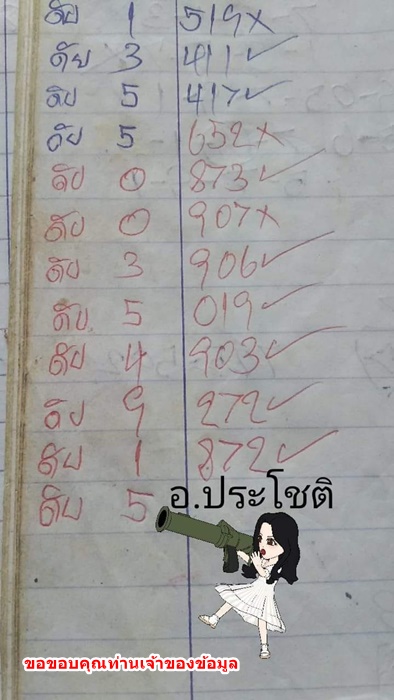 ดับ 1 519×
ดับ 3 411✓
ดับ 5 417✓
ดับ 5 652×
ดับ 0 873✓
ดับ 0 907×
ดับ 3 906✓
ดับ 5 019✓
ดับ 4 903✓
ดับ 9 272✓
ดับ 1 872✓
ดับ 5
อ.ประโชติ
ขอขอบคุณท่านเจ้าของข้อมูล